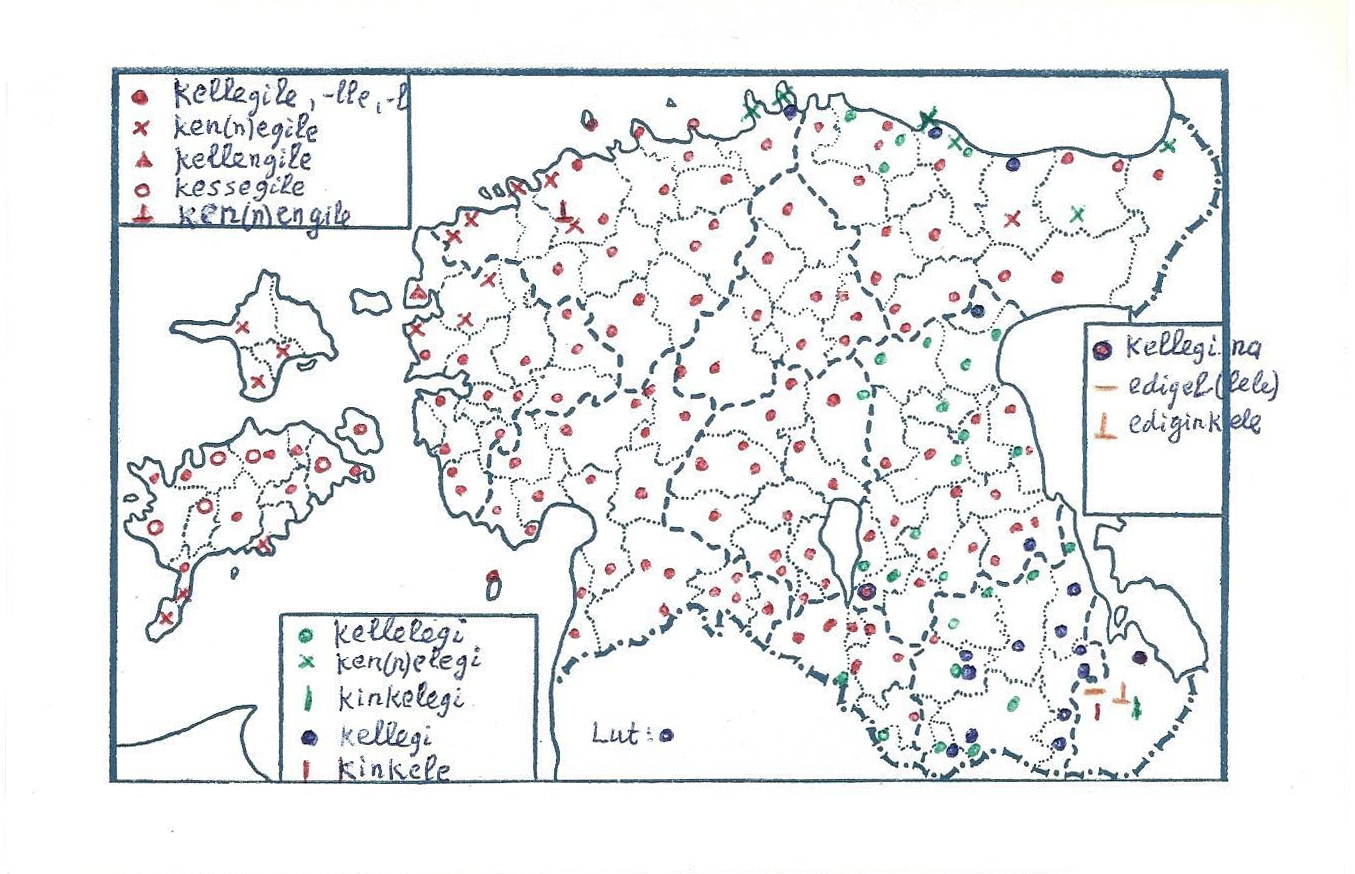 kellegile, -lle, -l
ken(n)egile
kellengile
kessegile
ken(n)engile
kellegi na
edigel(lele)
ediginkele
kellelegi
ken(n)elegi
kinkelegi
kellegi
kinkele
Lut: